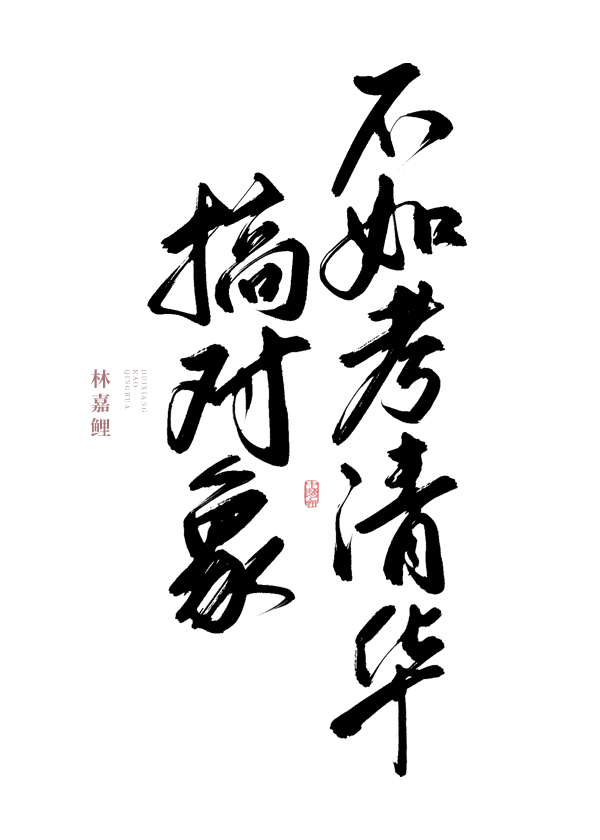 不如考清华
搞对象
DUIXIANG
KAO
QINGHUA
林嘉鲤